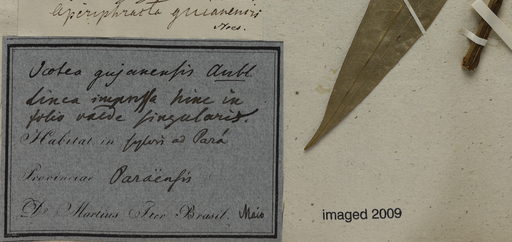 Aperiphracta guianensis
Nees.
Ocotea gujanensis Aubl.
Linea impressa hinc in
folio valde singularis.
Habitat in sylvis ad Pará
Provinciae Paraënsis
Dr. Martius Iter Brasil. Maio
imaged 2009